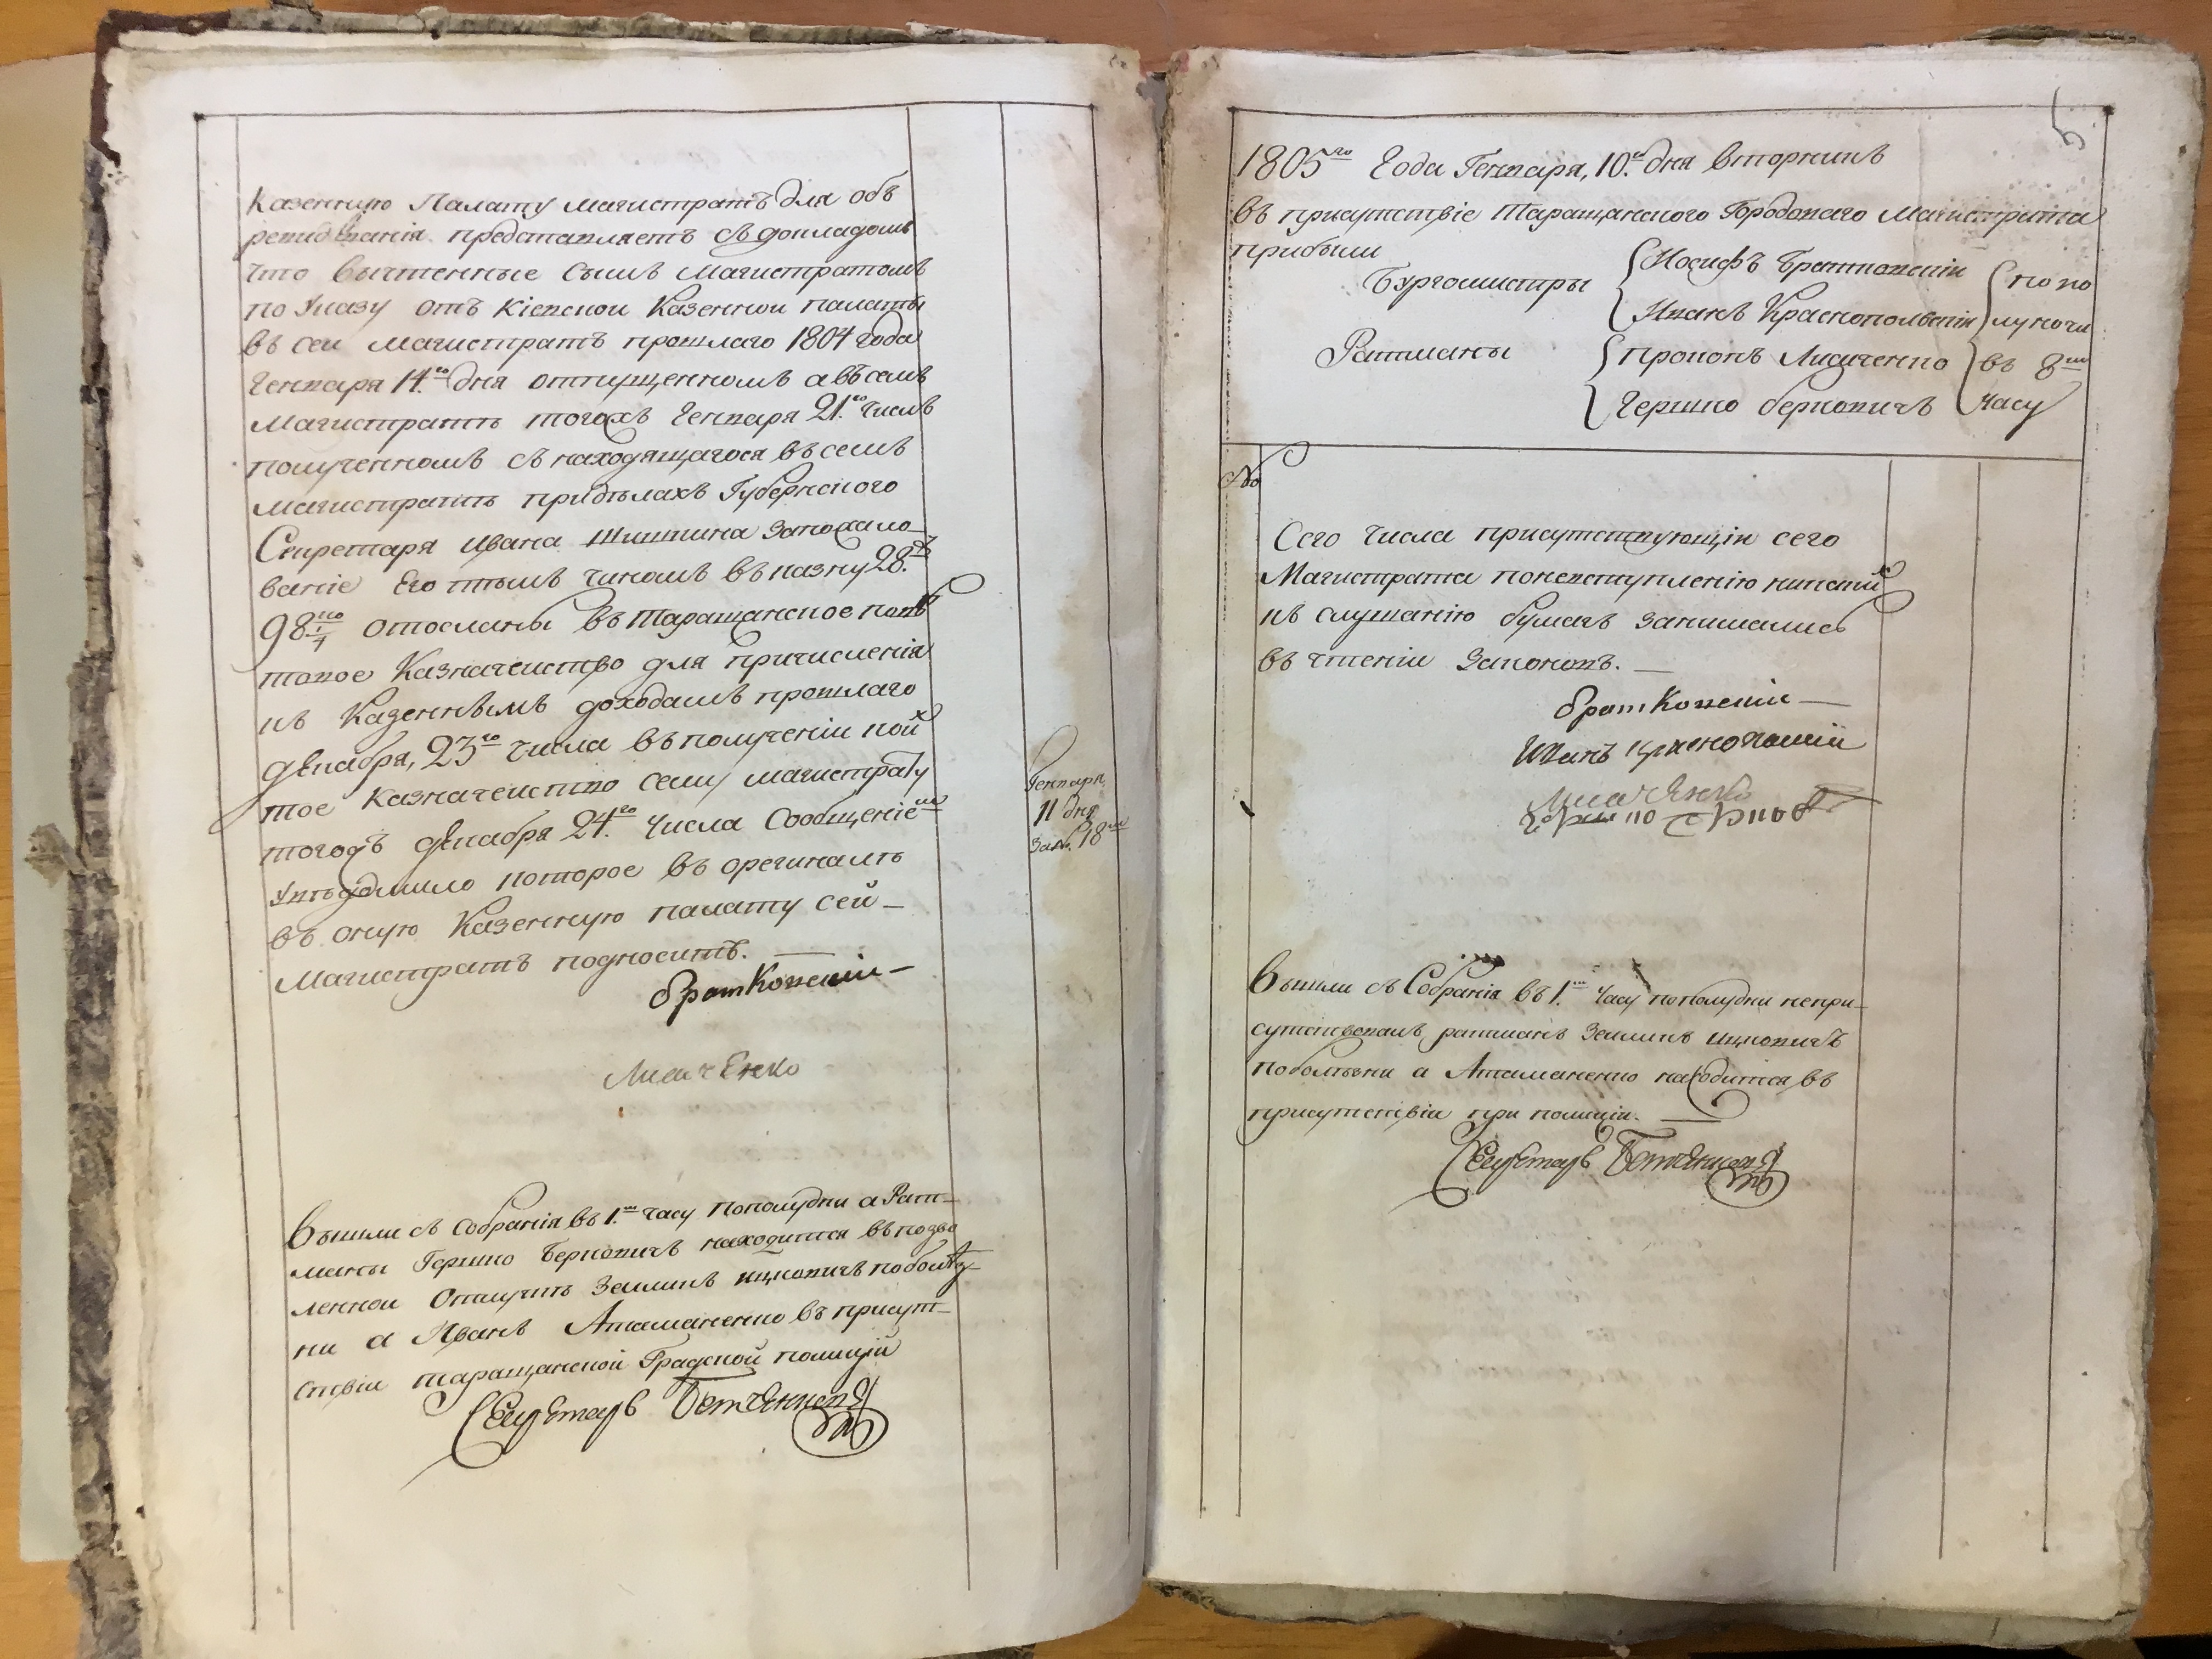 Казенную Палату магистратъ для об
ревидованія представляетъ съ докладомъ
что вычтенные симъ магистратомъ
по указу отъ Кіевской Казенной палаты
въ сей магистратъ прошлаго 1804 года
Генваря 14.го дня отпущенномъ а въ семъ
магистратѣ тогожъ Генваря 21.го числѣ
полученномъ съ находящагося въ семъ
магистратѣ придѣлахъ Губернского
Секретаря Ивана Шишкина запожало
ваніе Его тѣмъ чиномъ въ казну 28.
98 отосланы въ Таращанское повѣ
товое Казначейство для причисленія
къ Казеннымъ доходамъ прошлаго
декабря, 23го числа въ полученіи кой
тое казначейство сему магистрату
тогодъ декабря 24.го числа сообщеніем
увѣдомило которое въ орегиналѣ
въ оную Казенную палату сей
Магистратъ подноситъ.
Братковскій
Лисаченко
Генваря
11 дня
за №. 18
Вышли съ собранія въ 1.м часу пополудни а Рат-
маны Гершко Берковичъ находится въ позво
ленной отлучкѣ Зелликъ ицковичъ поболѣз-
ни а Иванъ Атаманенко въ присут-
ствіи таращанской Градской полиціи
Секретарь
5.
1805го Года Генваря, 10.го дня вторникъ
въ присутствіе Таращанского Городоваго Магистрата
прибыли
Бургомистры Иосифъ Братковскій по по
Иванъ Краснопольскій луночи
Ратманы Прокопъ Лисаченко въ 8м
Гершко берковичъ часу
№
Сего числа присутствующіи сего
Магистрата поневступленію никакихъ
къ слушанію бумагъ занимались
въ чтеніи законовъ.
Братковскій
Иванъ Краснопольскій
Лисаченко
Вышли съ Собранія въ 1.м часу пополудни непри-
сутствовалъ ратманъ Зелликъ ицковичъ
поболѣзни а Атаманенко находится въ
присутствіи при полиціи.
Секретарь